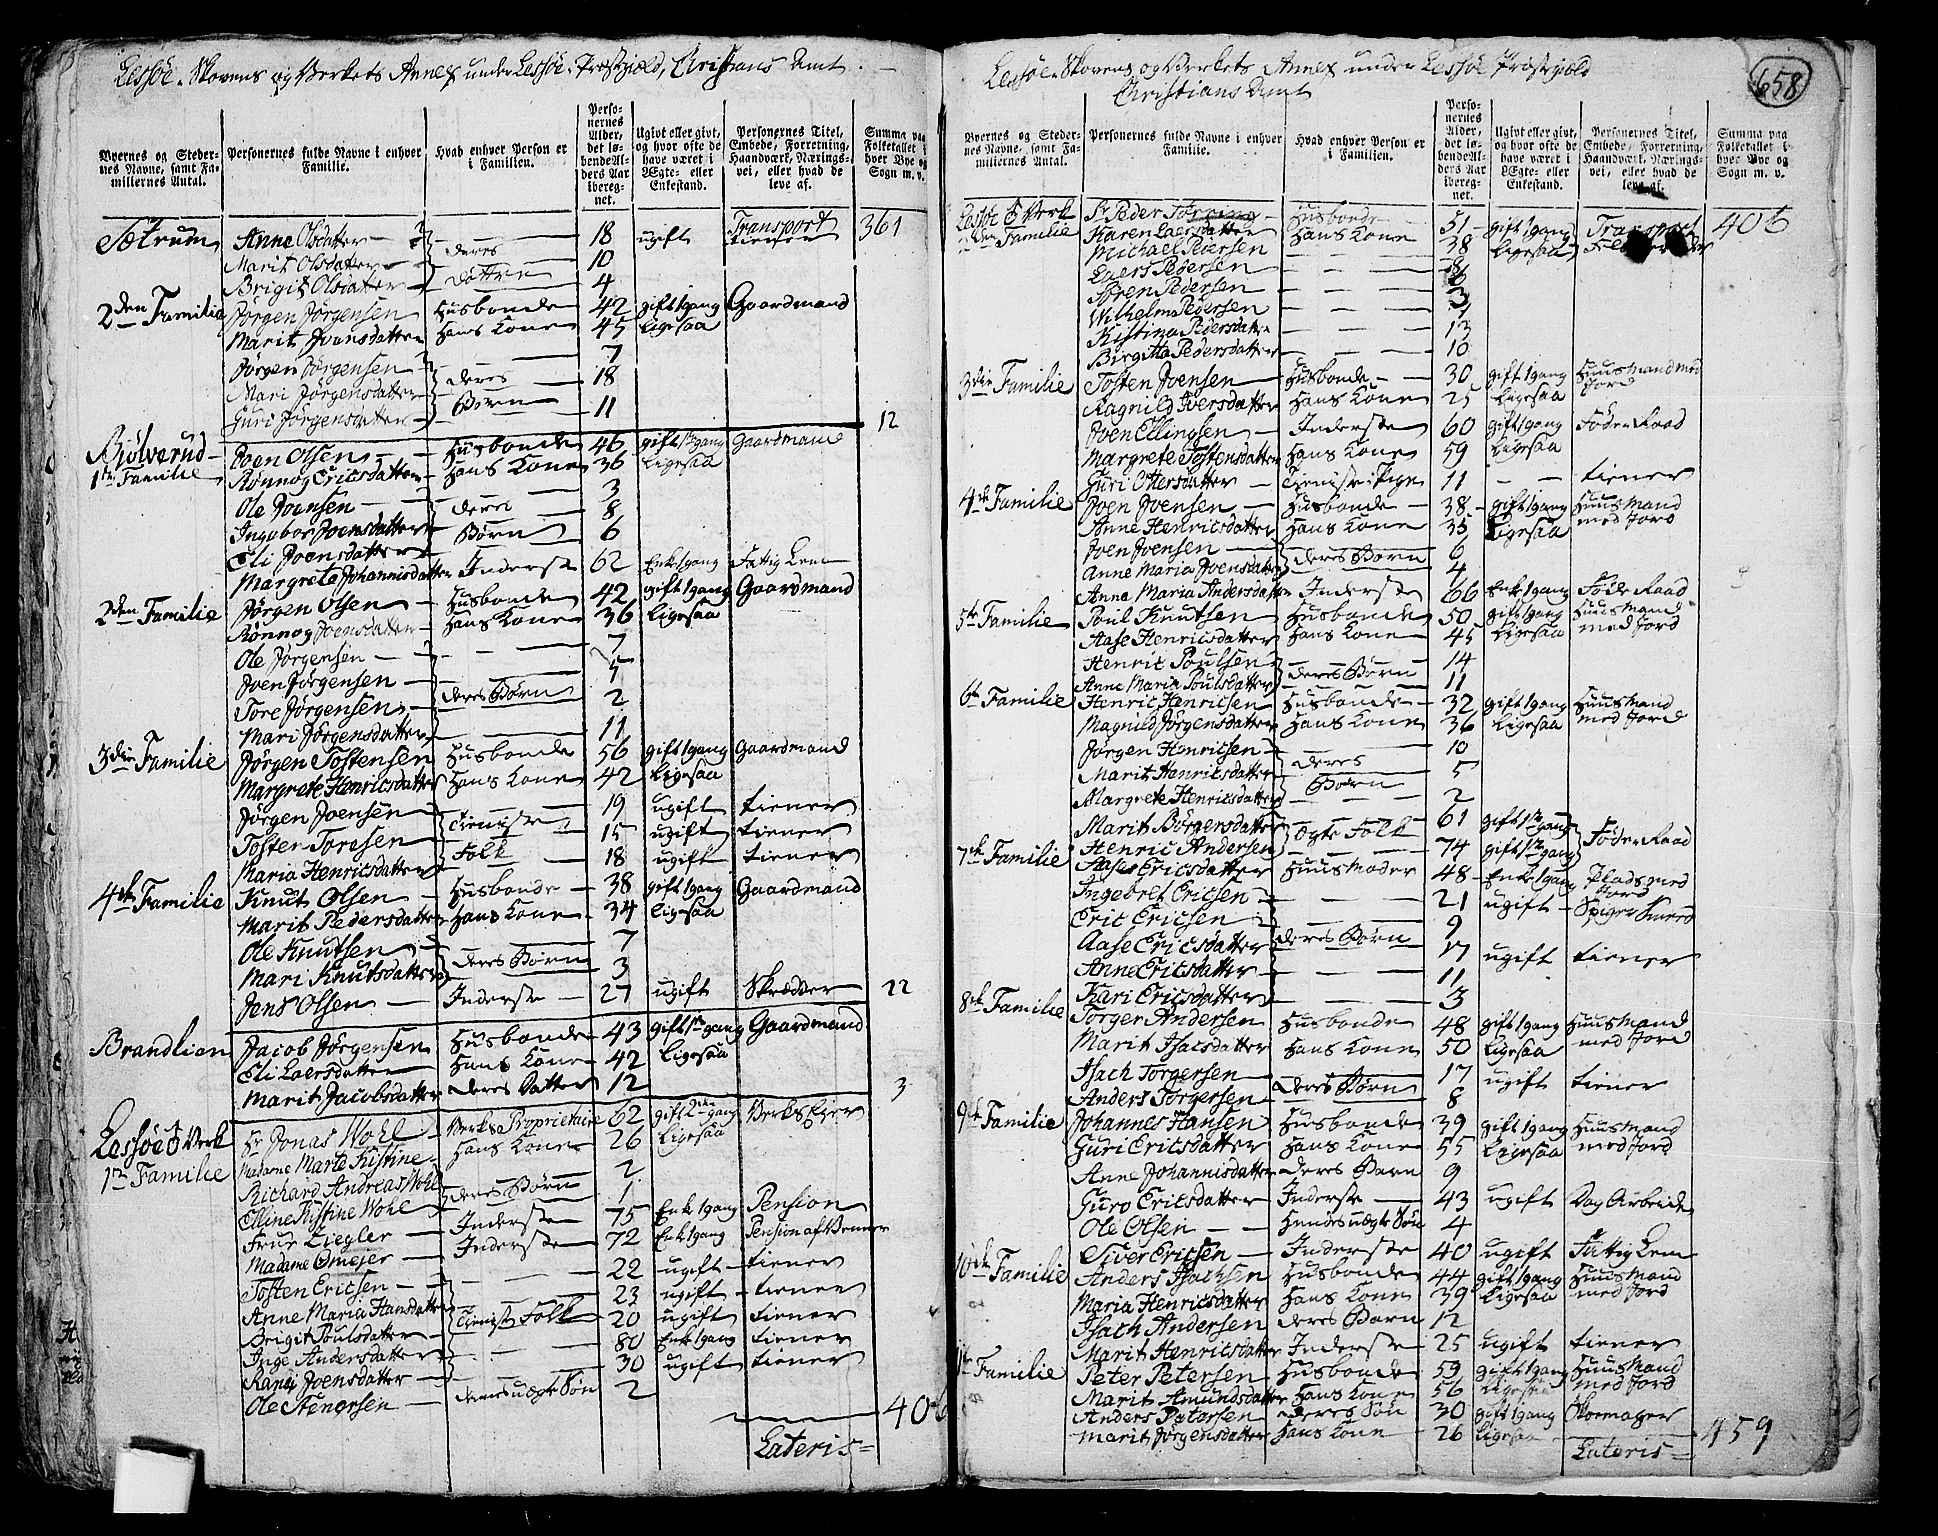 Lessøe-Skovens og Verkets Annex under Lessøe Præstgield, Christians Amt.
Byernes og Steder-nes Navne, samt Fa-miliernes Antal. | Personernes fulde Navne i enhver Familie. | Hvad enhver Person er i Familien. | Perso-nernes Alder, det lø-bende Al-ders Aar iberegnet. | Ugivt eller givt, og hvor ofte de have været i Ægte- eller Enkestand. | Personernes Titel, Embede, Forretning, Haandværk, Nærings-vei, eller hvad de leve af. | Summa paa Folketallet i hver Bye og Sogn m. v.
Transport 361
Sætrum Anne Olsdatter 18 ugift tiener
Marit Olsdatter deres 10
Brigit Olsdatter døttre 4
2den Familie Jørgen Jörgensen Husbonde 42 gift 1gang Gaardmand
Marit Joensdatter Hans Kone 45 Ligesaa
Jørgen Jörgensen 7
Mari Jörgensdatter deres 18
Guri Jørgensdatter Børn 11 12
Bjølverud Joen Olsen Husbonde 46 gift 1ste gang Gaardmand
1ste Familie Rønnog Ericsdatter Hans Kone 36 Ligesaa
Ole Joensen 3
Ingebor Joensdatter deres 8
Eli Joensdatter Børn 6
Margreta Johannisdatter Inderste 62 Enke 1gang Fattig Lem
2den Familie Jørgen Olsen Husbonde 42 gift 1gang Gaardmand
Rønnog Joensdatter Hans Kone 36 Ligesaa
Ole Jørgensen 7
Joen Jørgensen 5
Tore Jørgensen deres Børn 2
Mari Jørgensdatter 11
3die Familie Jørgen Tostensen Husbonde 56 gift 1gang Gaardmand
Margrete Henricsdatter Hans Kone 42 Ligesaa
Jørgen Joensen 19 ugift tiener
Tosten Toresen Tieniste 15 ugift tiener
Maria Henricsdatter Folk 18 ugift tiener
4de Familie Knut Olsen Husbonde 38 gift 1gang Gaardmand
Marit Pedersdatter Hans Kone 34 Ligesaa
Ole Knutsen 7
Mari Knutsdatter deres Børn 3
Jens Olsen Inderste 27 ugift Skrædder 22
Brandlien Jacob Jørgensen Husbonde 43 gift 1ste gang Gaardmand
Eli Laersdatter Hans Kone 42 Ligesaa
Marit Jacobsdatter deres Datter 12 3
Lessøe Verk Sr Jonas Wohl Verks Proprietaire 62 gift 2den gang Verks Ejer
1ste Familie Madame Marte Kistine Hans Kone 26 Ligesaa
Richard Andreas Wohl 2
Elline Kistine Wohl deres Børn 1
Frue Ziegler Inderste 75 Enke 1gang Pension
Madame Omejer Inderste 72 Enke 1gang Pension af Venner
Tosten Ericsen 22 ugift tiener
Anne Maria Hansdatter 23 ugift tienere
Brigit Poulsdatter Tieniste Folk 20 ugift tiener
Inge Andersdatter 80 Enke 1gang tiener
Ranej Joensdatter 30 ugift tiener
Ole Stenersen deres uægte Søn 2
Lateris 406
658
Lessøe-Skovens og Verkets Annex under Lessøe Præstgield
Christians Amt
Byernes og Steder-nes Navne, samt Fa-miliernes Antal. | Personernes fulde Navne i enhver Familie. | Hvad enhver Person er i Familien. | Perso-nernes Alder, det lø-bende Al-ders Aar iberegnet. | Ugivt eller givt, og hvor ofte de have været i Ægte- eller Enkestand. | Personernes Titel, Embede, Forretning, Haandværk, Nærings-vei, eller hvad de leve af. | Summa paa Folketallet i hver Bye og Sogn m. v.
Transport 406
Lessøe Verk Sr Peder Husbonde 51 gift 1gang
2den Familie Karen Laersdatter Hans Kone 38 Ligesaa
Michael Pedersen
Laers Pedersen
Søren Pedersen 3
Wilhelm Pedersen
Kistina Pedersdatter 13
Birgitta Pedersdatter 10
3die Familie Tosten Joensen Husbonde 30 gift 1gang Huusmand med Jord
Ragnild Iversdatter Hans Kone 25 Ligesaa
Joen Ellingsen Inderste 60 gift 1gang Føde Raad
Margrete Tostensdatter Hans Kone 59 Ligesaa
Guri Ottersdatter Tieniste Pige 11 tiener
4de Familie Joen Joensen Husbonde 38 gift 1gang Huusmand med Jord
Anne Henricsdatter Hans Kone 35 Ligesaa
Joen Joensen 6
Anne Maria Joensdatter deres Børn 4
Anna Maria Andersdatter Inderste 66 Enke 1gang Føde Raad
5te Familie Poul Knutsen Husbonde 50 gift 1gang Huusmand med Jord
Aase Henricsdatter Hans Kone 45 Ligesaa
Henric Poulsen 14
Anne Maria Poulsdatter deres Børn 11
6te Familie Henric Henricsen Husbonde 32 gift 1gang Huusmand med Jord
Magnild Jørgensdatter Hans Kone 36 Ligesaa
Jørgen Henricsen 10
Marit Henricsdatter deres 5
Margrete Henricsdatter Børn 2
Marit Børgensdatter 61 gift 1ste gang
7de Familie Henric Andersen Ægte Folk 74 gift 1ste gang Føde Raad
Aase Ericsdatter Huusmoder 48 Enke 1gang Plads med Jord
Ingebret Ericsen 21 ugift Spiger Smed
Eric Ericsen 9
Aase Ericsdatter deres Børn 17 ugift tiener
Anne Ericsdatter 11
Kari Ericsdatter 3
8de Familie Torger Andersen Husbonde 48 gift 1gang Huusmand med Jord
Marit Isacsdatter Hans Kone 50 Ligesaa
Isach Torgersen 17 ugift tiener
Anders Torgersen deres Børn 8
9de Familie Johannes Hansen Husbonde 39 gift 1gang Huusmand med Jord
Guri Ericsdatter Hans Kone 55 Ligesaa
Anne Johannisdatter deres Barn 9
Guro Ericsdatter Inderste 43 ugift Dag Arbeide
Ole Olsen Hendes uægte Søn 4
Siver Ericsen Inderste 40 ugift Fattig Lem
10de Familie Anders Isachsen Husbonde 44 gift 1gang Huusmand med Jord
Maria Henricsdatter Hans Kone 39 Ligesaa
Isach Andersen deres Barn 12
Marit Henricsdatter Inderste 25 ugift tiener
11te Familie Peter Petersen Husbonde 59 gift 1gang Huusmand med Jord
Marit Amundsdatter Hans Kone 56 Ligesaa
Anders Petersen deres Søn 30 gift 1gang Skoemager
Marit Jørgensdatter Hans Kone 26 Ligesaa
Lateris 459